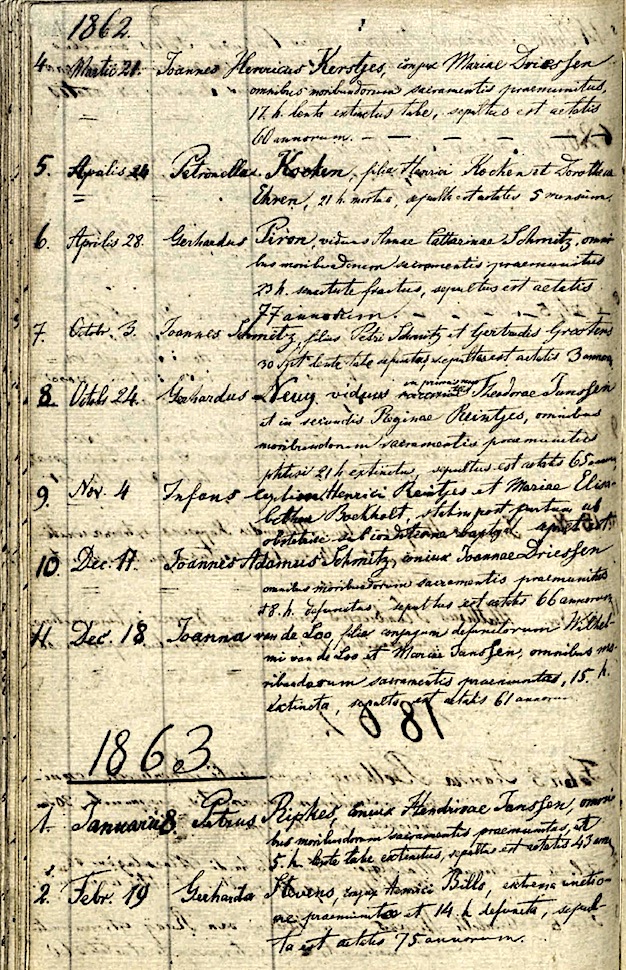 1862.
4. Martii 21. Joannes Henricus Kerstjes, conjux Mariae Driessen
omnibus moribundorum sacramentis praemunitus,
17. h. lenta extinctus tabe, sepultus est aetatis
60 annorum. — — — — —
5. Aprilis 24 Petronella Kocken, filia Henrici Kocken et Dorothea
Ehren, 21 h. mortua, sepulta est aetatis 5 mensium.
6. Aprilis 28. Gerhardus Piron, viduus Annae Catharinae Schmitz, omni
bus moribundorum sacramentis praemunitus
23 h. senectute fractus, sepultus est aetatis
77 annorum. - - - -
7. Octobr. 3. Joannes Schmitz, filius Petri Schmitz et Gertrudis
30 Sept. lenta tabe sepultus est aetatis 3 annor.
8. Octob. 24. Gerhardus viduus in primis Theodorae Janssen
et in secundis Reginae Reintjes, omnibus
moribundorum sacramentis praemunitus
phtisi 21 h extinctus, sepultus est aetatis 65 annor.
9. Nov. 4 Infans Henrici Reintjes et Mariae Elisa-
bethae Bockholt, statim post partum ab
obstetrice sepult. est
10. Dec. 17. Joannes Adamus Schmitz, conjux Joannae Driessen
omnibus moribundorum sacramentis praemunitus
8. h. defunctus, sepultus est aetatis 66 annorum
11. Dec. 18 Joanna van de Loo, filia conjugum defunctorum Wilhel-
mi van de Loo et Mariae Janssen, omnibus mo-
ribundorum sacramentis praemunita, 15. h.
extincta, sepulta est aetatis 61 annorum
1863
1. Januarii 8. Petrus Ripkes, conjux Hendrinae Janssen, omni
bus moribundorum sacramentis praemunitus, et
5. h. lenta tabe extinctus, sepultus est aetatis 43 ann
2. Febr. 19 Gerharda Stevens, conjux Henrici Bills, extrema unctio-
ne praemunita et 14. h defuncta, sepul-
ta est aetatis 75 annorum.